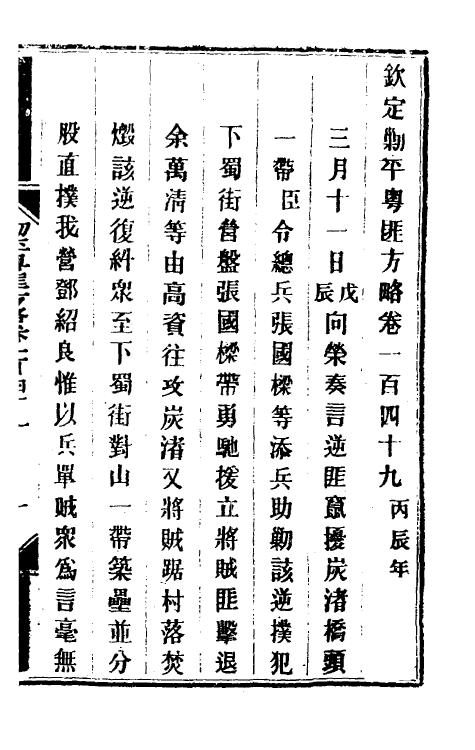 欽定勦平粵匪方略卷一百四十九丙辰年
三月十一日戊辰向榮奏言逆匪竄擾炭渚橋頭
一帶臣令總兵張國樑等添兵助勦該逆撲犯
下蜀街營盤張國樑帶勇馳援立將賊匪擊退
余萬清等由高資往攻炭渚又將賊踞村落焚
燬該逆復糾眾至下蜀街對山一帶築壘並分
股直撲我營鄧紹良惟以兵單賊眾爲言毫無